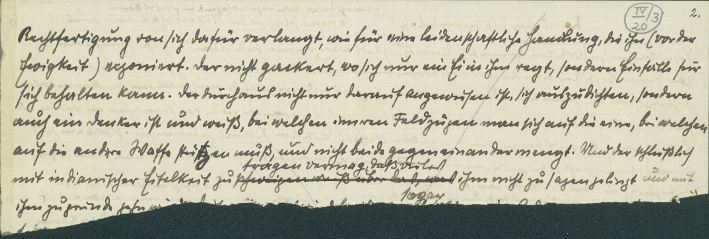 IV/3
20
2.
Rechtfertigung von sich dafür verlangt, wie für eine leidenschaftliche Handlung, die ihn (vor der
Ewigkeit) exponiert. Der nicht gackert, wo sich nur ein Ei in ihm regt, sondern Einfälle für
sich behalten kann. Der durchaus nicht nur darauf angewiesen ist, sich auszudichten, sondern
auch ein Denker ist und weiß, bei welchen inneren Feldzügen man sich auf die eine, bei welchen
auf die andere Waffe stützen muß, und nicht beide gegeneinander mengt. Und der schließlich
tragen vermag, daß vieles
mit indianischer Eitelkeit zu schweigen weiß über das, was ihm nicht zu sagen gelingt und mit
sogar
ihm zugrunde gehn